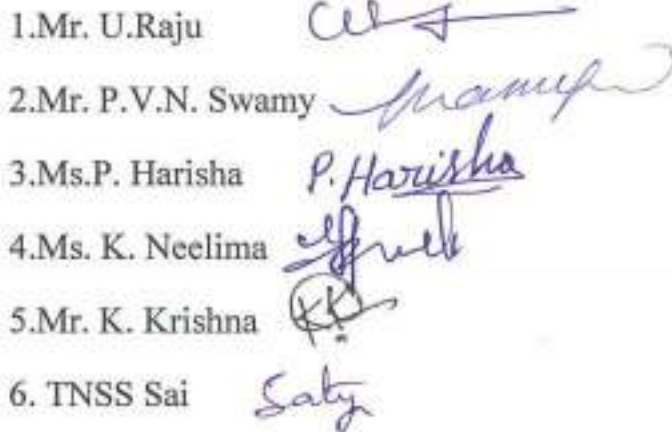 1.Mr. U.Raju
2.Mr. P.V.N. Swamy
3.Ms.P. Harisha P. Harisha
4.Ms. K. Neelima
5.Mr. K. Krishna KK.
6. TNSS Sai Saty